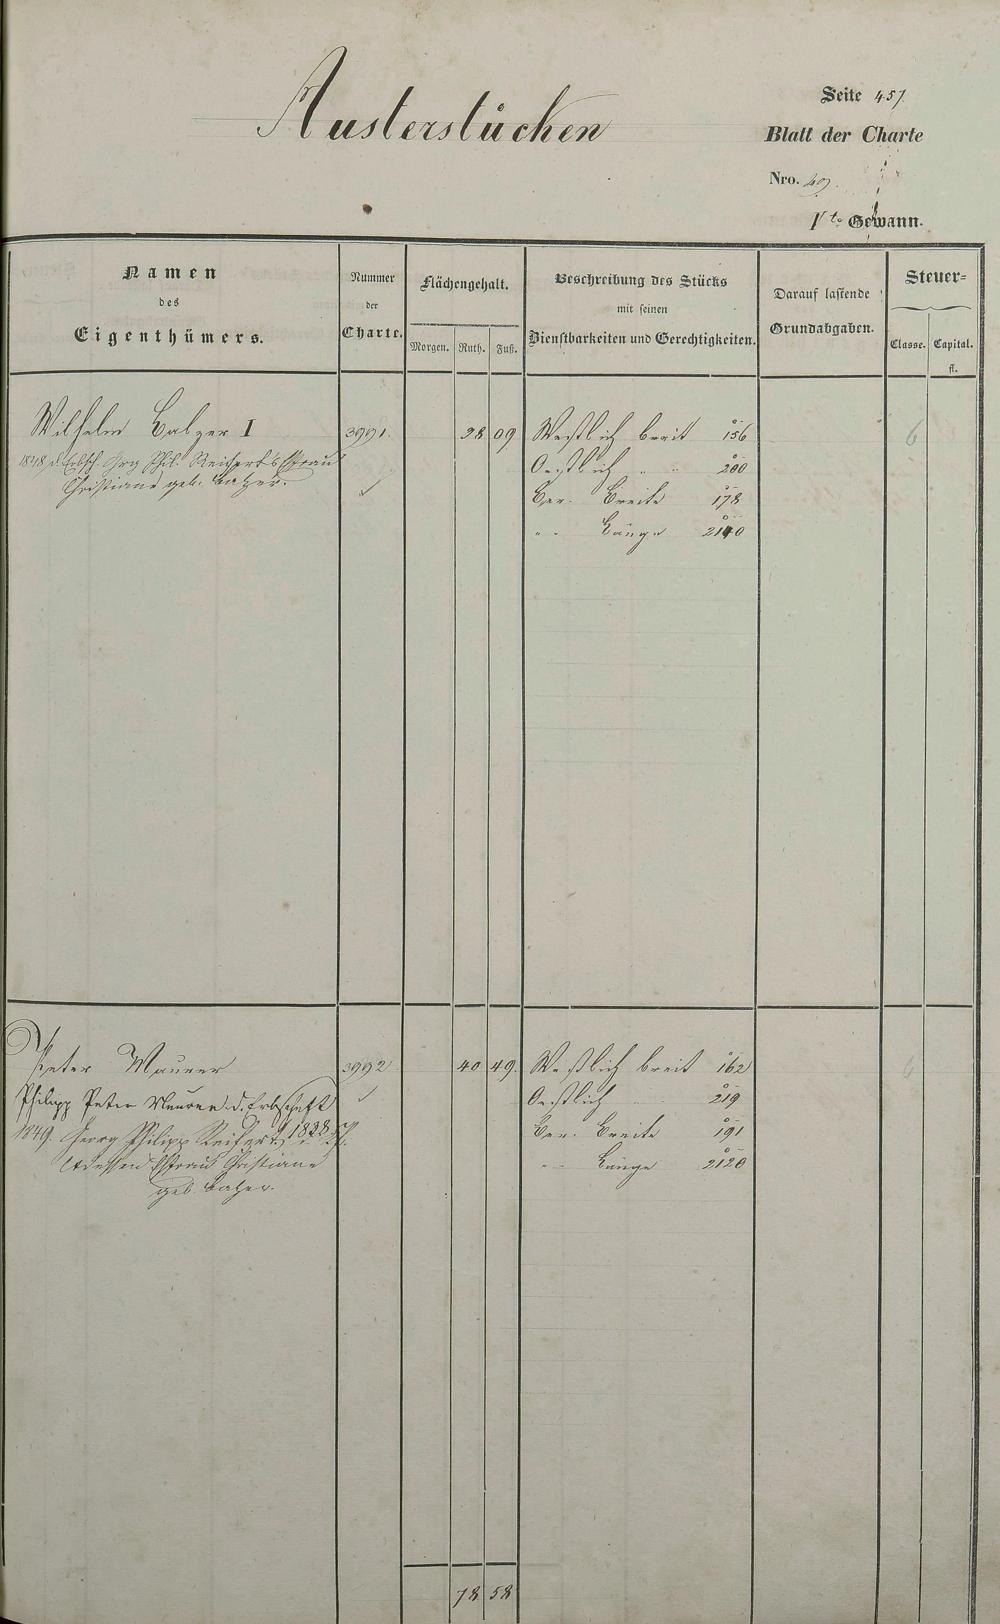 Austerstücken
Seite 457
Blatt der Charte
Nro. 49
1te Gewann.
Namen des Eigenthümers.
Nummer der Charte.
Flächengehalt.
Morgen. Ruth. Fuß.
Beschreibung des Stücks mit seinen Dienstbarkeiten und Gerechtigkeiten.
Darauf lastende Grundabgaben.
Steuer-
Classe. Capital. fl.
Wilhelm Balzer I 3991. 38 09 Westlich breit 156 6
1848 d. Erbsch. Grg Phil. Reichert's Ehefrau Oestlich " " 200
Christiane geb. Balzer. Ber. Breite 178
" " Länge 2140
Peter Maurer 3992 40 49 Westlich breit 162 6
Philipp Peter Maurer d. Erbschaft Oestlich " " 219
1849. Georg Philipp 1838 Ber. Breite 191
dessen Ehefrau Christiane " " Länge 2120
geb. Balzer.
78 58